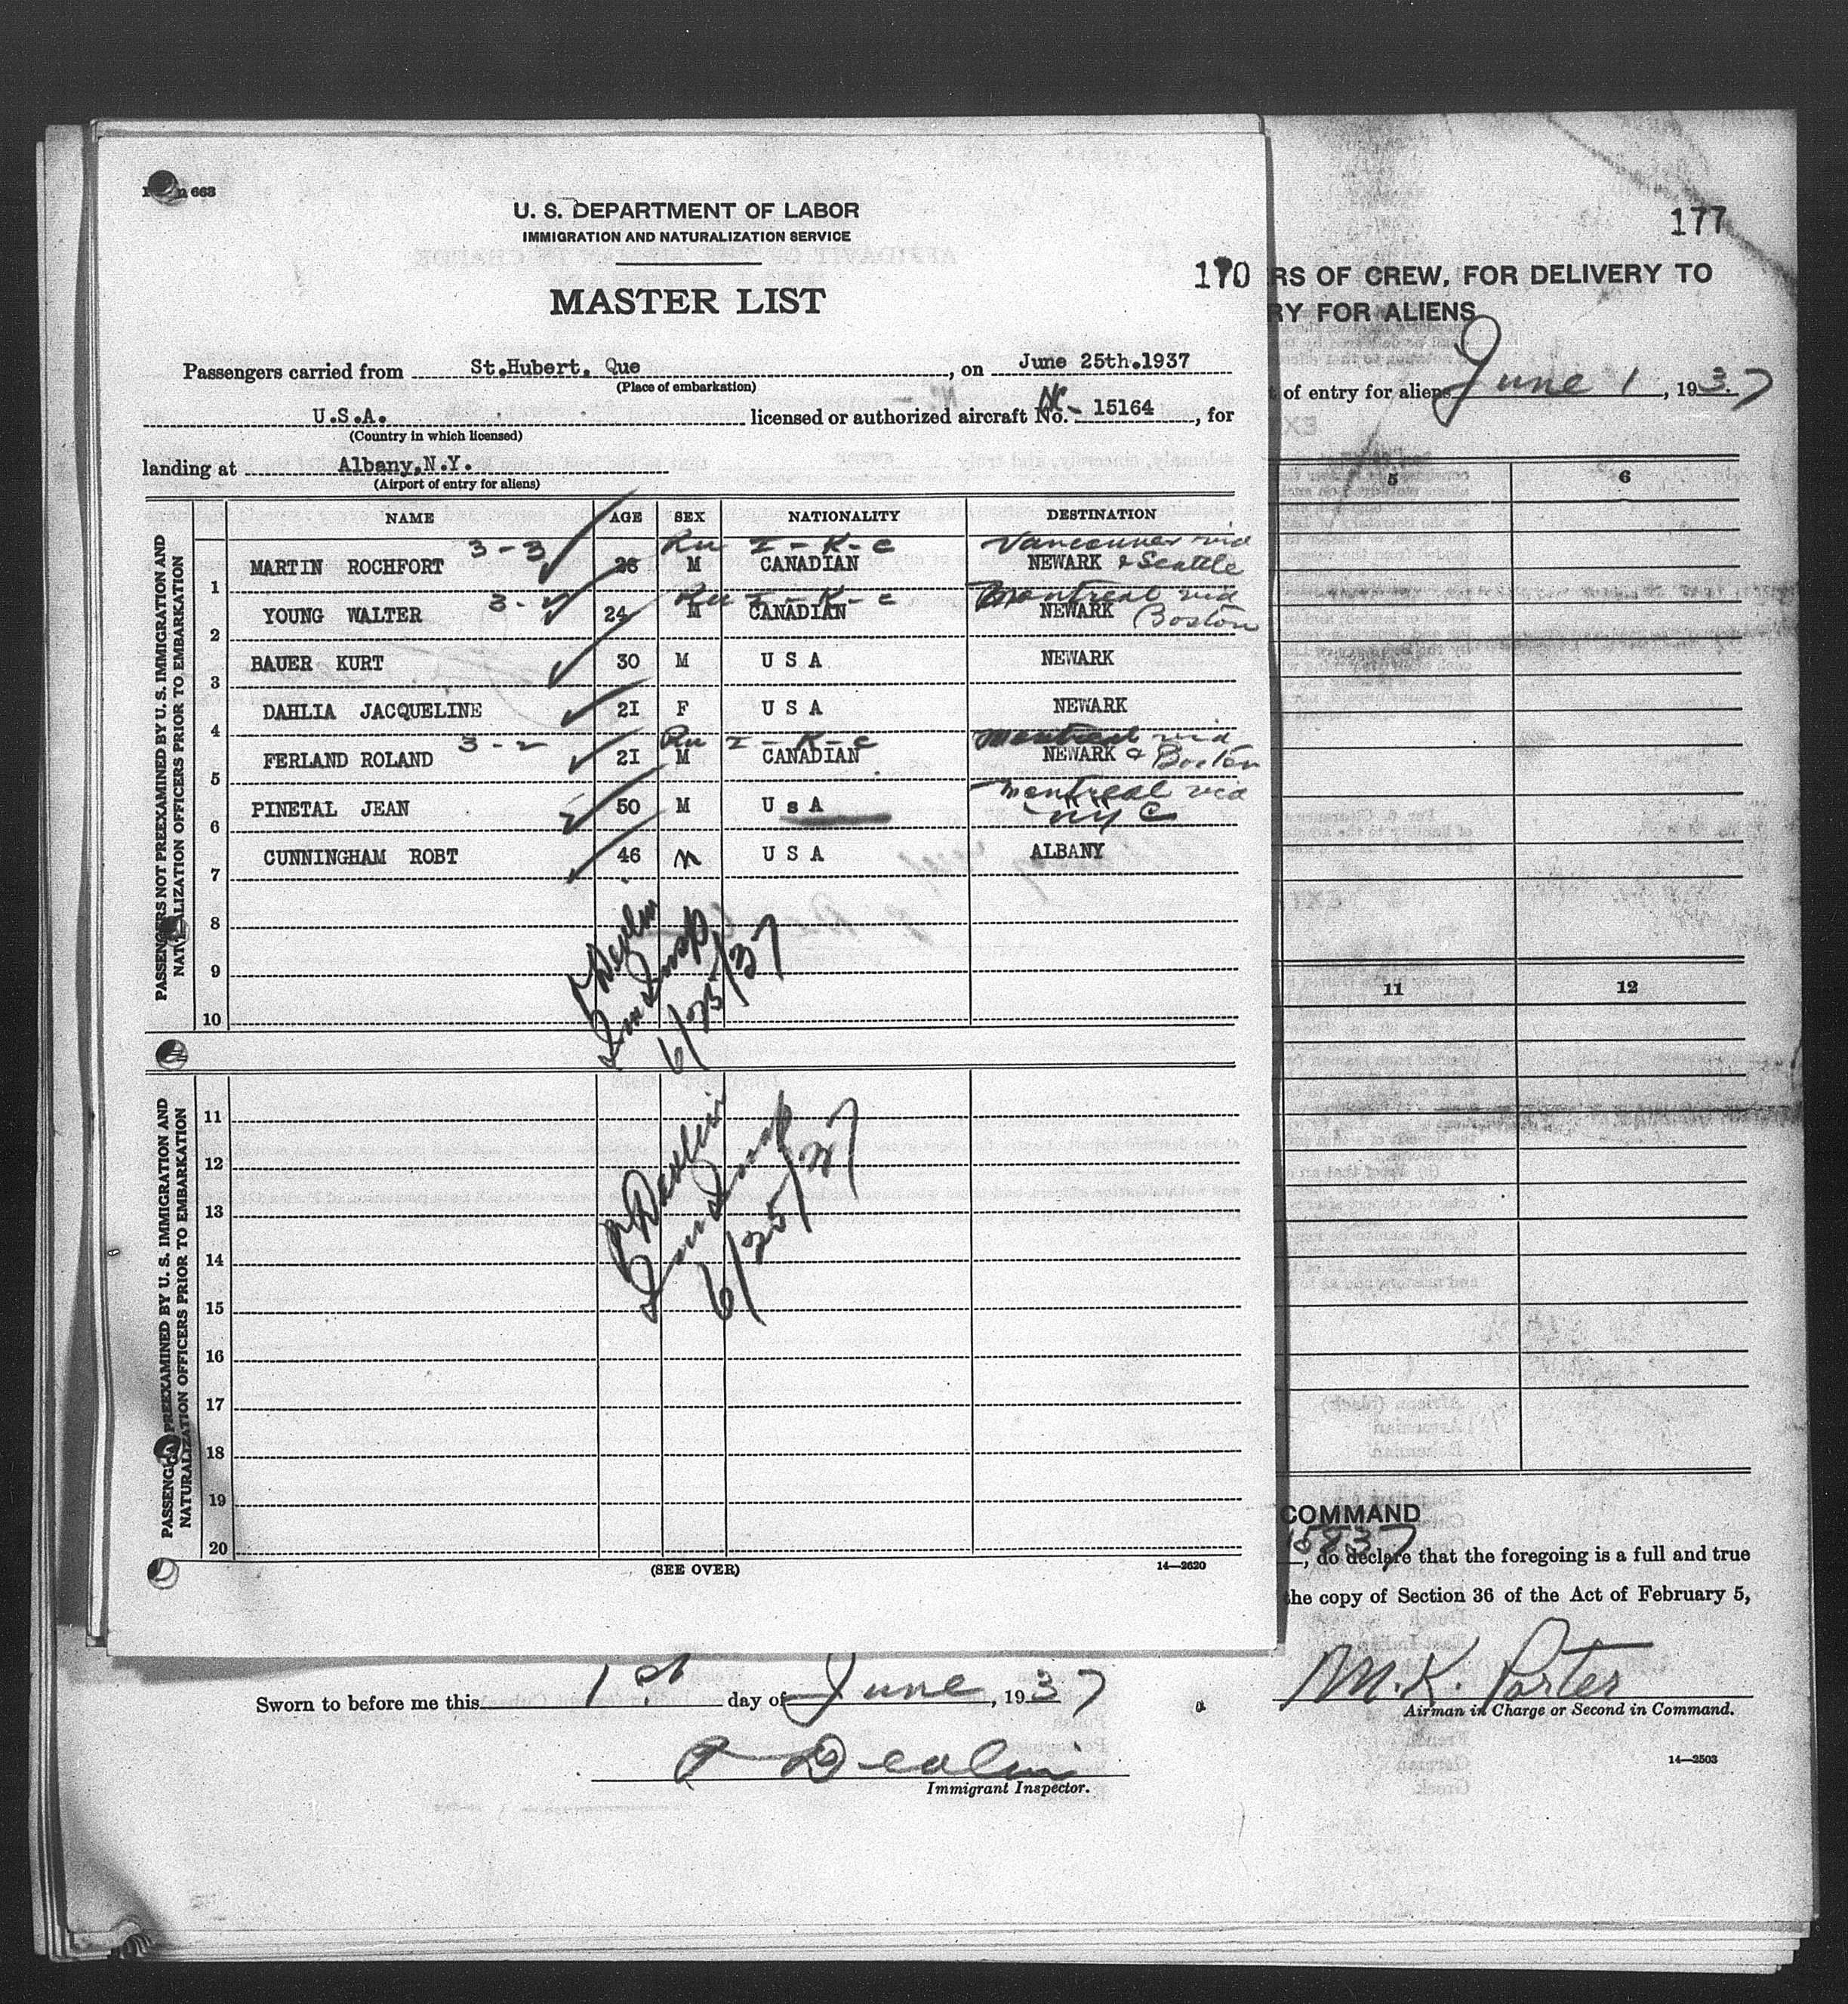 663
U. S. DEPARTMENT OF LABOR
IMMIGRATION AND NATURALIZATION SERVICE
MASTER LIST
170
Passengers carried from St.Hubert. Que, on June 25th.1937
(Place of embarkation)
U.S.A. licensed or authorized aircraft No. NC- 15164, for
(Country in which licensed)
landing at Albany,N.Y.
(Airport of entry for aliens)
PASSENGERS NOT PREEXAMINED BY U. S. IMMIGRATION AND NATURALIZATION OFFICERS PRIOR TO EMBARKATION
NAME AGE SEX NATIONALITY DESTINATION
3-3 I-K-C Vancouver via
1 MARTIN ROCHFORT 26 M CANADIAN NEWARK & Seattle
I-K-C Montreal via
2 YOUNG WALTER 24 M CANADIAN NEWARK Boston
3 BAUER KURT 30 M U S A NEWARK
4 DAHLIA JACQUELINE 21 F U S A NEWARK
3-2 I-K-C Montreal via
5 FERLAND ROLAND 21 M CANADIAN NEWARK & Boston
Montreal via
6 PINETAL JEAN 50 M U s A NY C
7 CUNNINGHAM ROBT 46 M U S A ALBANY
8
9
10
Imm Insp
6/25/37
PASSENGERS PREEXAMINED BY U. S. IMMIGRATION AND NATURALIZATION OFFICERS PRIOR TO EMBARKATION
11
12
13
14
15
16
17
18
19
20
Imm Insp
6/25/37
(SEE OVER)
14—2620
177
RS OF CREW, FOR DELIVERY TO
RY FOR ALIENS
t of entry for aliens June 1, 1937
5 6
11 12
COMMAND
15837
, do declare that the foregoing is a full and true
the copy of Section 36 of the Act of February 5,
M.K. Porter
Airman in Charge or Second in Command.
Sworn to before me this 1st day of June, 1937
Immigrant Inspector.
14—2503